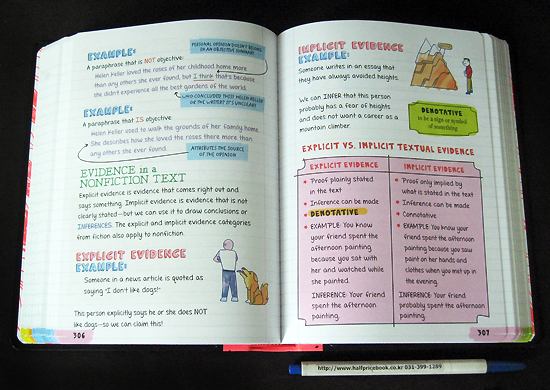 EXAMPLE:
A paraphrase that is NOT objective:
PERSONAL OPINION DOESN'T BELONG
IN AN OBJECTIVE SUMMARY
Helen Keller loved the roses of her childhood home more
than any others she ever found, but I think that's because
she didn't experience all the best gardens of the world.
WHO CONCLUDED THIS? HELEN KELLER
OR THE WRITER? IT'S UNCLEAR!
EXAMPLE:
A paraphrase that IS objective:
Helen Keller used to walk the grounds of her family home.
She describes how she loved the roses there more than
any others she ever found.
ATTRIBUTES THE SOURCE
OF THE OPINION
EVIDENCE in a
NONFICTION TEXT
Explicit evidence is evidence that comes right out and
says something. Implicit evidence is evidence that is not
clearly stated—but we can use it to draw conclusions or
INFERENCES. The explicit and implicit evidence categories
from fiction also apply to nonfiction.
EXPLICIT EVIDENCE
EXAMPLE:
Someone in a news article is quoted as
saying "I don't like dogs!"
This person explicitly says he or she does NOT
like dogs—so we can claim this!
306
IMPLICIT EVIDENCE
EXAMPLE:
Someone writes in an essay that
they have always avoided heights.
We can INFER that this person
probably has a fear of heights
and does not want a career as a
mountain climber.
DENOTATIVE
to be a sign or symbol
of something
EXPLICIT VS. IMPLICIT TEXTUAL EVIDENCE
EXPLICIT EVIDENCE
• Proof plainly stated
in the text
• Inference can be made
• DENOTATIVE
• EXAMPLE: You know
your friend spent the
afternoon painting
because you sat with
her and watched while
she painted.
INFERENCE: Your friend
spent the afternoon
painting.
IMPLICIT EVIDENCE
• Proof only implied by
what is stated in the text
• Inference can be made
• Connotative
• EXAMPLE: You know your
friend spent the
afternoon painting
because you saw
paint on her hands and
clothes when you met up in
the evening.
INFERENCE: Your friend
probably spent the afternoon
painting.
307
http://www.halfpricebook.co.kr 031-399-1289